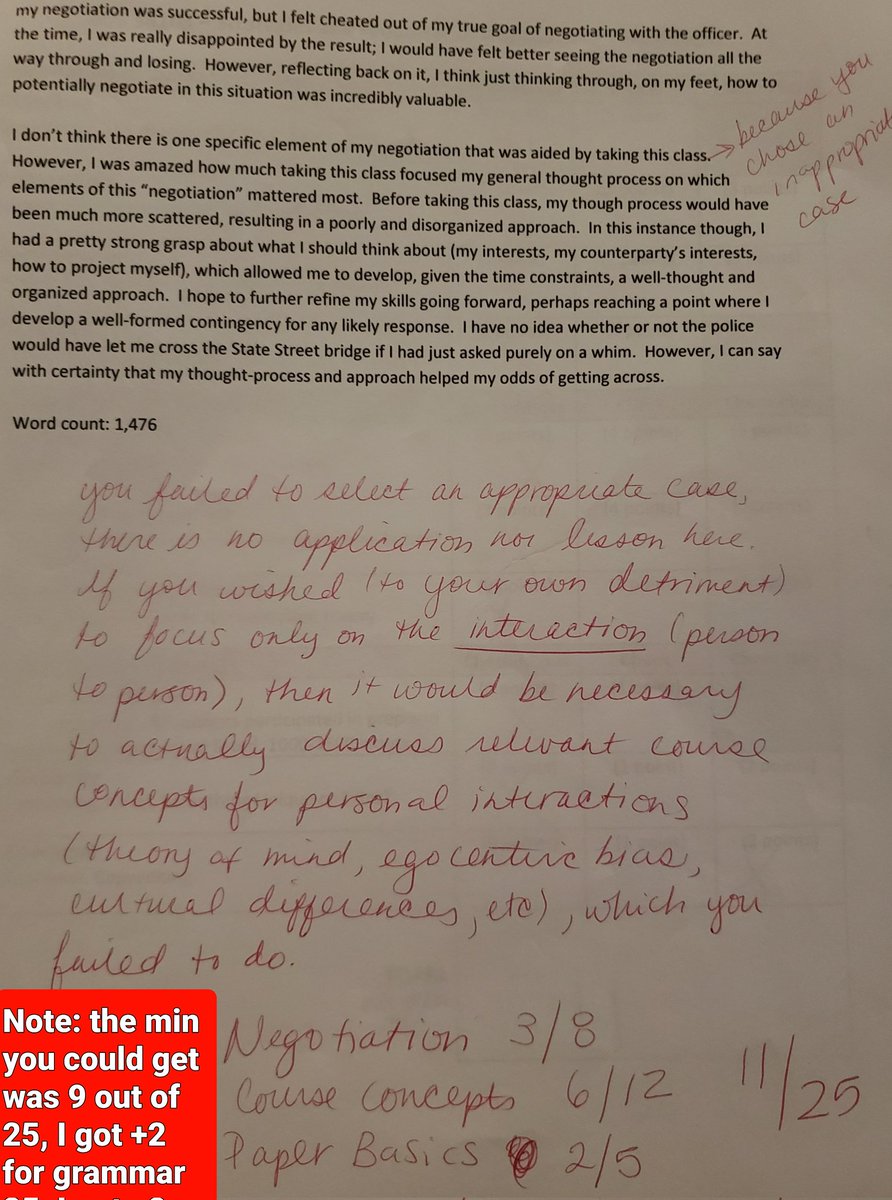 my negotiation was successful, but I felt cheated out of my true goal of negotiating with the officer. At
the time, I was really disappointed by the result; I would have felt better seeing the negotiation all the
way through and losing. However, reflecting back on it, I think just thinking through, on my feet, how to
potentially negotiate in this situation was incredibly valuable.
I don't think there is one specific element of my negotiation that was aided by taking this class.
However, I was amazed how much taking this class focused my general thought process on which
elements of this "negotiation" mattered most. Before taking this class, my though process would have
been much more scattered, resulting in a poorly and disorganized approach. In this instance though, I
had a pretty strong grasp about what I should think about (my interests, my counterparty's interests,
how to project myself), which allowed me to develop, given the time constraints, a well-thought and
organized approach. I hope to further refine my skills going forward, perhaps reaching a point where I
develop a well-formed contingency for any likely response. I have no idea whether or not the police
would have let me cross the State Street bridge if I had just asked purely on a whim. However, I can say
with certainty that my thought-process and approach helped my odds of getting across.
because you
chose an
inappropriate
case
Word count: 1,476
you failed to select an appropriate case,
there is no application nor lesson here.
If you wished (to your own detriment)
to focus only on the interaction (person
to person), then it would be necessary
to actually discuss relevant course
concepts for personal interactions
(theory of mind, egocentric bias,
cultural differences, etc), which you
failed to do.
Negotiation 3/8
Course Concepts 6/12
Paper Basics 2/5
11/25
Note: the min
you could get
was 9 out of
25, I got +2
for grammar